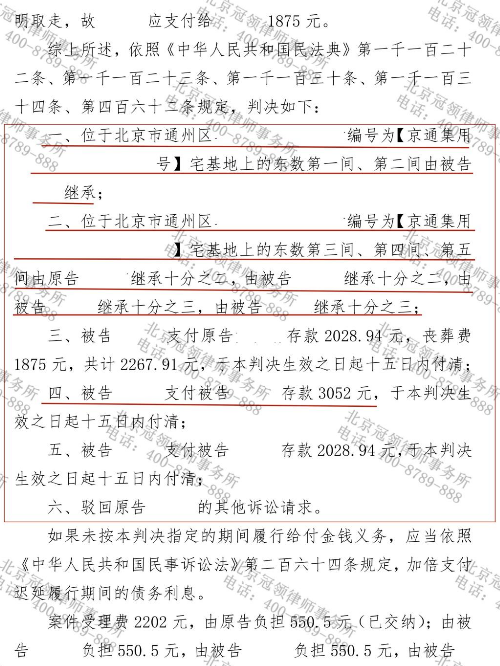 明取走，故 应支付给 1875 元。
综上所述，依照《中华人民共和国民法典》第一千一百二十
二条、第一千一百二十三条、第一千一百三十条、第一千一百三
十四条、第四百六十二条规定，判决如下：
一、位于北京市通州区 编号为【京通集用
号】宅基地上的东数第一间、第二间由被告
继承；
二、位于北京市通州区 编号为【京通集用
】宅基地上的东数第三间、第四间、第五
间由原告 继承十分之二，由被告 继承十分之二，由
被告 继承十分之三，由被告 继承十分之三；
三、被告 支付原告 存款 2028.94 元，丧葬费
1875 元，共计 2267.91 元，于本判决生效之日起十五日内付清；
四、被告 支付被告 存款 3052 元，于本判决生
效之日起十五日内付清；
五、被告 支付被告 存款 2028.94 元，于本判决
生效之日起十五日内付清；
六、驳回原告 的其他诉讼请求。
如果未按本判决指定的期间履行给付金钱义务，应当依照
《中华人民共和国民事诉讼法》第二百六十四条规定，加倍支付
迟延履行期间的债务利息。
案件受理费 2202 元，由原告负担 550.5 元（已交纳）；由被
告 负担 550.5 元，由被告 负担 550.5 元，由被告
北京冠领律师事务所
电话：400-8789-888